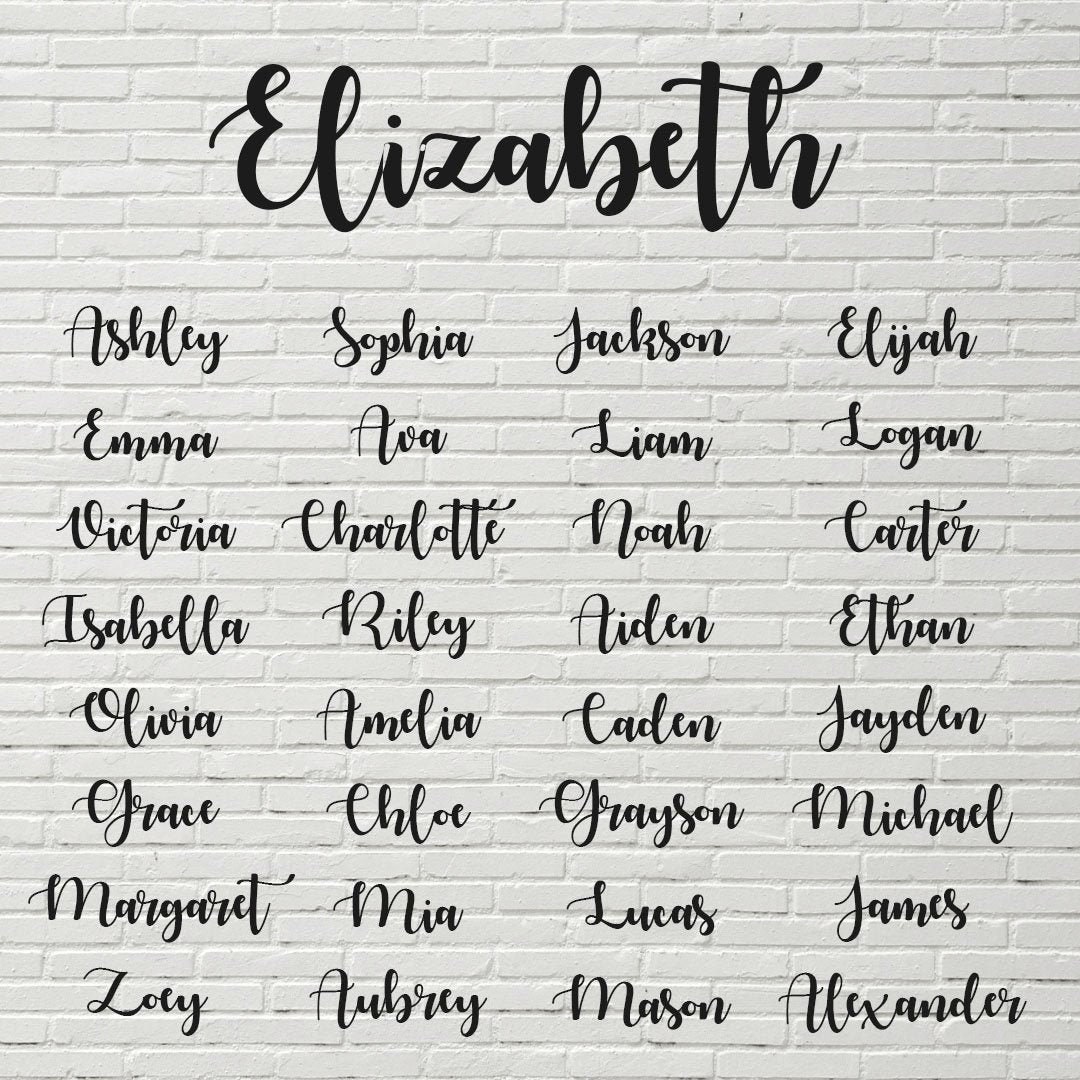 Elizabeth
Ashley Sophia Jackson Elijah
Emma Ava Liam Logan
Victoria Charlotte Noah Carter
Isabella Riley Aiden Ethan
Olivia Amelia Caden Jayden
Grace Chloe Grayson Michael
Margaret Mia Lucas James
Zoey Aubrey Mason Alexander